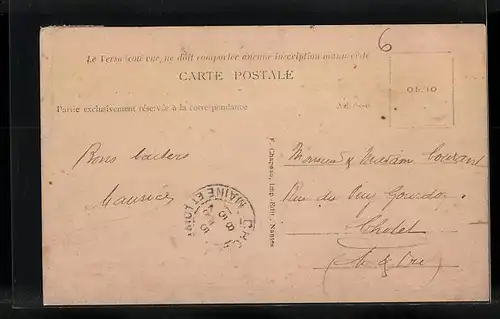 6
Le Verso (côté vue) ne doit comporter aucune inscription manuscrite
CARTE POSTALE
Partie exclusivement réservée à la correspondance
Adresse
Bons baisers
Maurice
MAINE ET LOIRE
F. Chapeau, Imp.-Edit., Nantes
Monsieur & Madame
Rue du Puy Gourdon
Cholet
(M & Lre)